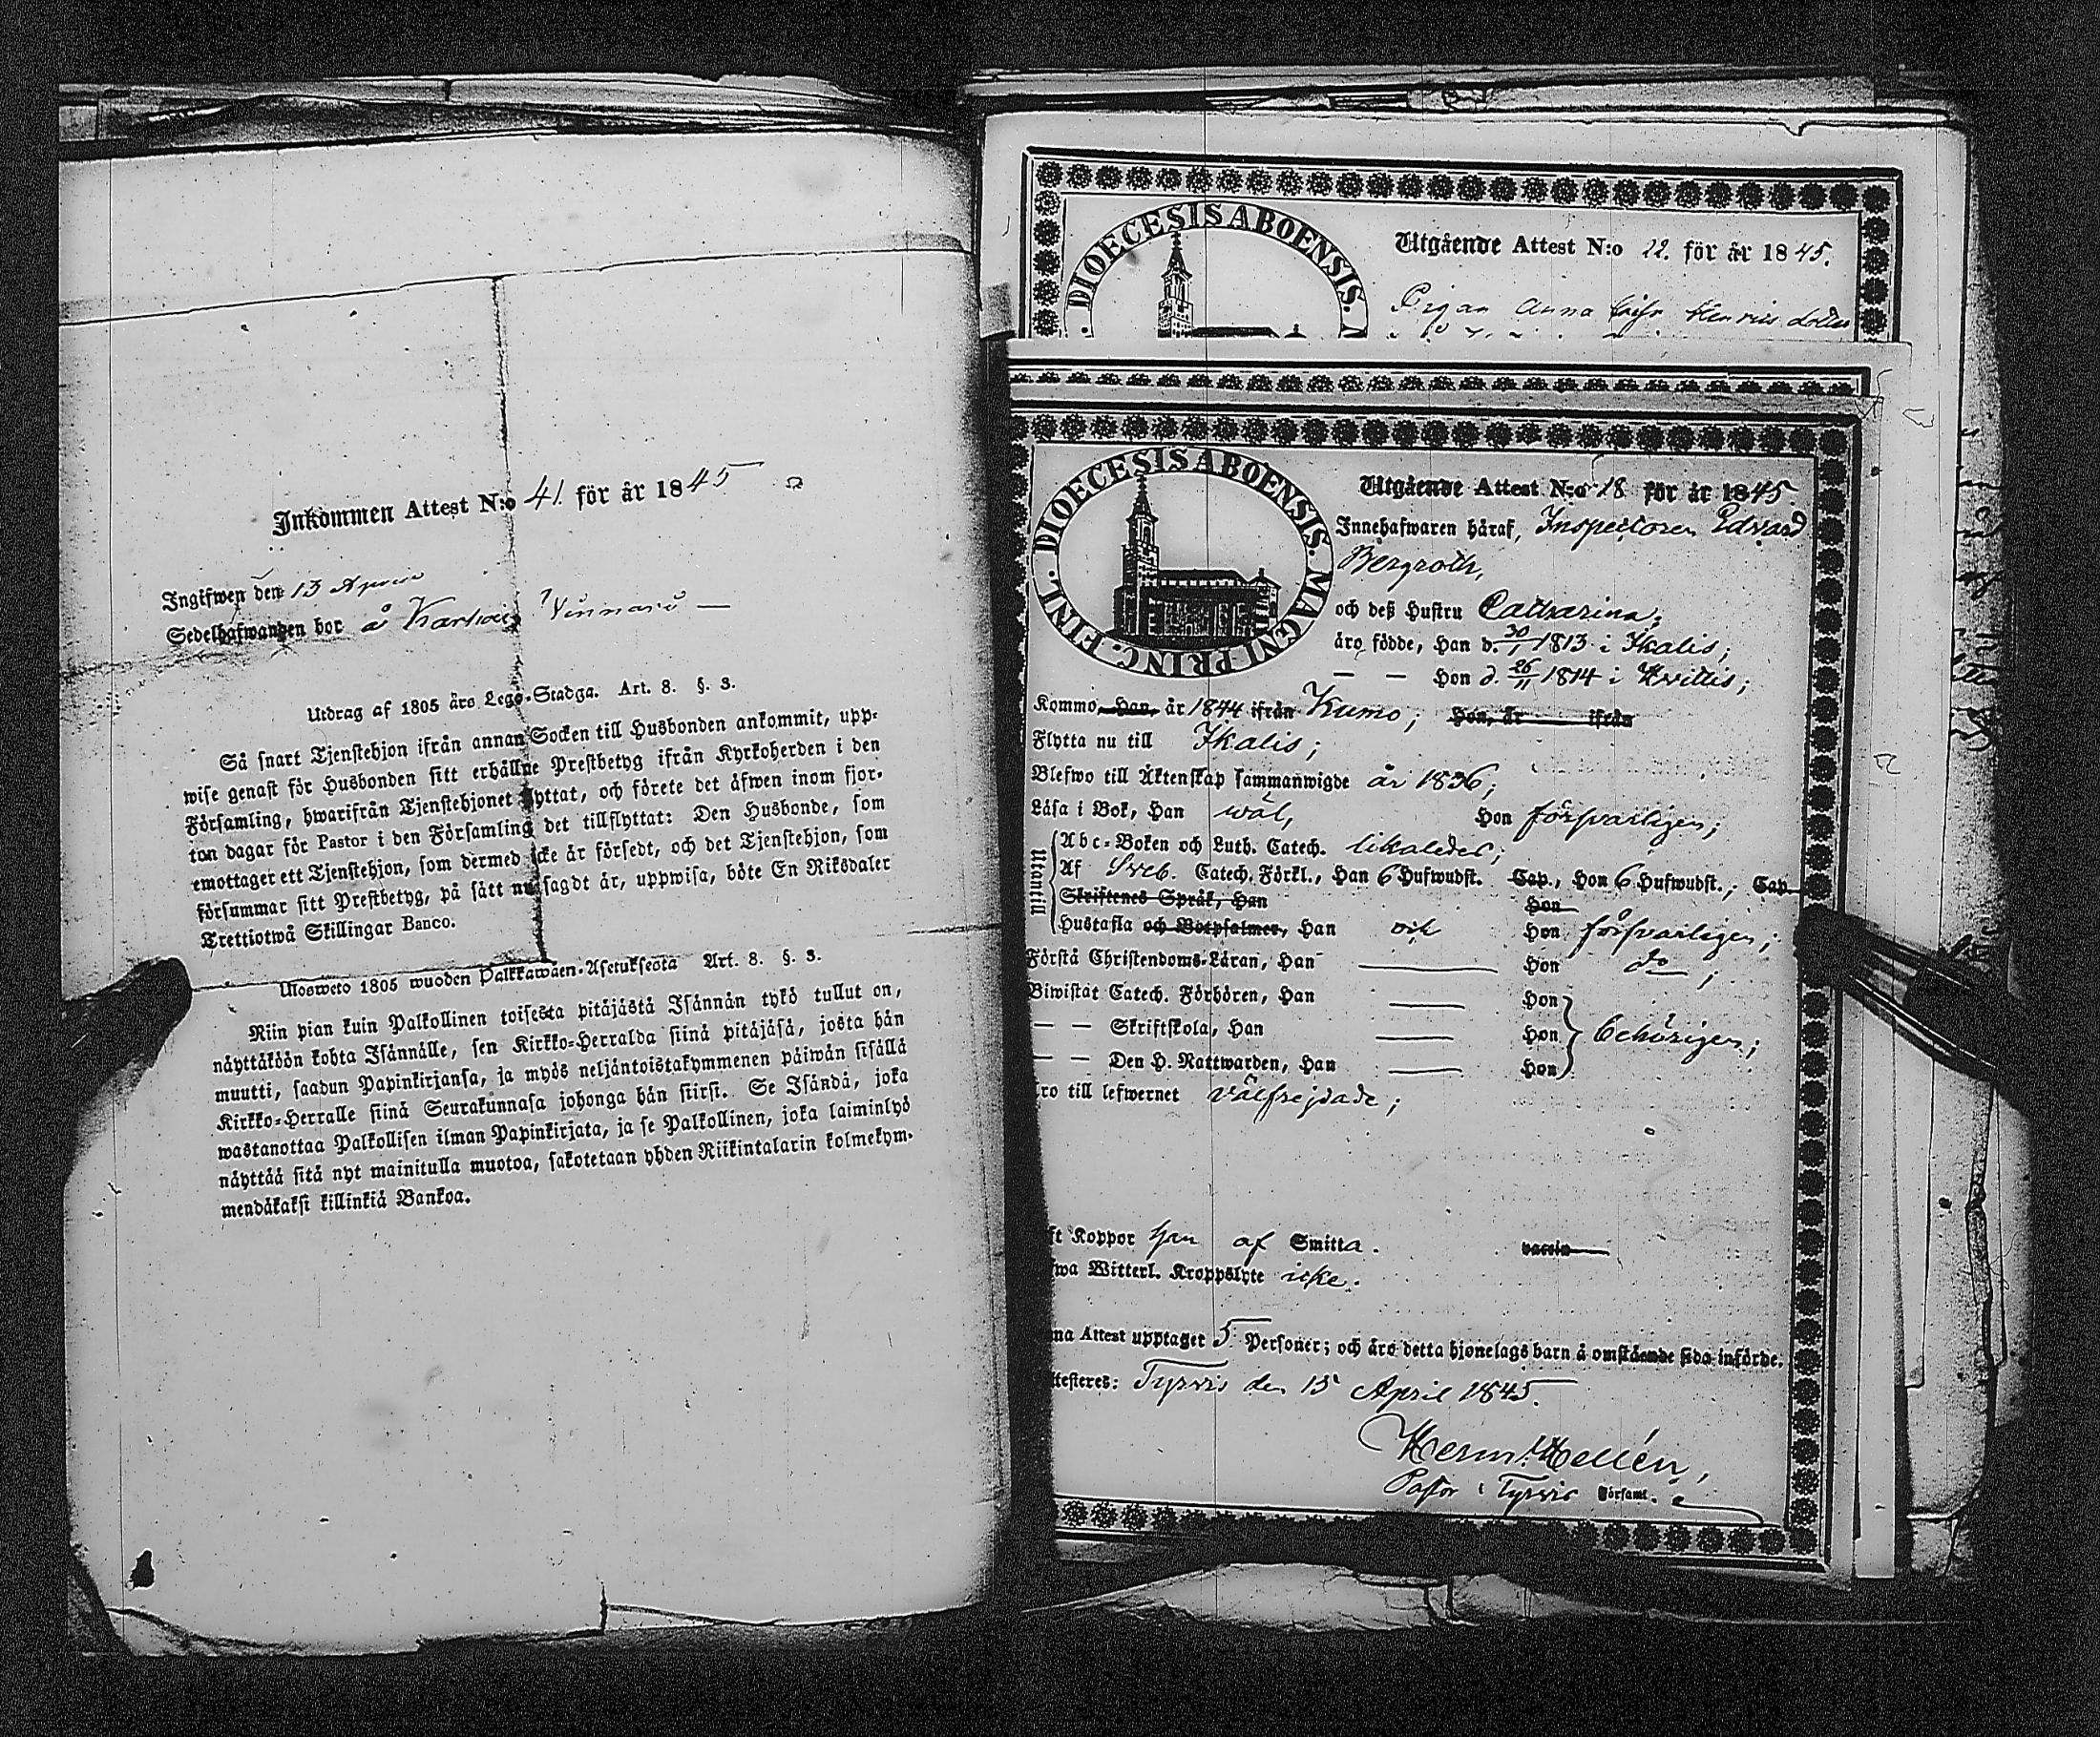 Inkommen Attest N:o 41. för år 1845
Ingifwen den 13 April
Sedelhafwanden bor å
Utdrag af 1805 års Lego-Stadga. Art. 8. §. 3.
Så snart Tjenstehjon ifrån annan Socken till Husbonden ankommit, upp-
wise genast för Husbonden sitt erhållne Prestbetyg ifrån Kyrkoherden i den
Församling, hwarifrån Tjenstehjonet flyttat, och förete det äfwen inom fjor-
ton dagar för Pastor i den Församling det tillflyttat: Den Husbonde, som
emottager ett Tjenstehjon, som dermed icke är försedt, och det Tjenstehjon, som
försummar sitt Prestbetyg, på sätt nu sagdt är, uppwisa, böte En Riksdaler
Trettiotwå Skillingar Banco.
Ulosweto 1805 wuoden Palkkawäen-Asetuksesta Art. 8. §. 3.
Niin pian kuin Palkollinen toisesta pitäjästä Isännän tykö tullut on,
näyttäköön kohta Isännälle, sen Kirkko-Herralda siinä pitäjäsä, josta hän
muutti, saadun Papinkirjansa, ja myös neljäntoistakymmenen päiwän sisällä
Kirkko-Herralle siinä Seurakunnasa johonga hän siirsi. Se Isändä, joka
wastanottaa Palkollisen ilman Papinkirjata, ja se Palkollinen, joka laiminlyö
näyttää sitä nyt mainitulla muotoa, sakotetaan yhden Riikintalarin kolmekym-
mendäkaksi killinkiä Bankoa.
DIOECESIS ABOENSIS. M
Utgående Attest N:o 22. för år 1845.
Pigan Anna Caisa Henrics dotter
DIOECESIS ABOENSIS. MAGNI PRINC. FINL.
Utgående Attest N:o 18 för år 1845
Innehafwaren häraf, Inspectoren Edvard
Bergroth,
och deß Hustru Catharina;
äro födde, Han d. 30/1 1813 i Ikalis;
— — Hon d. 26/11 1814 i Hvittis;
Kommo Han, år 1844 ifrån Kumo; Hon, år ifrån
Flytta nu till Ikalis;
Blefwo till Äktenskap sammanwigde år 1836;
Läsa i Bok, Han wäl, Hon försvarligen;
Utantill
Abc-Boken och Luth. Catech. likaledes;
Af Sveb. Catech. Förkl., Han 6 Hufwudst. Cap., Hon 6 Hufwudst.; Cap.
Skriftenes Språk, Han Hon
Hustafla och Botpsalmer, Han Hon försvarligen;
Förstå Christendoms-Läran, Han Hon do;
Biwistat Catech. Förhören, Han Hon
— — Skriftskola, Han Hon behörigen;
— — Den H. Nattwarden, Han Hon
ro till lefwernet välfrejdade;
ft Koppor Han af Smitta. vaccin
fwa Witterl. Kroppslyte icke.
na Attest upptager 5 Personer; och äro detta hjonelags barn å omstående sida införde.
ttesteres: Tyrvis den 13 April 1845.
Herm. Hellén,
Pastor i Tyrvis Församl.